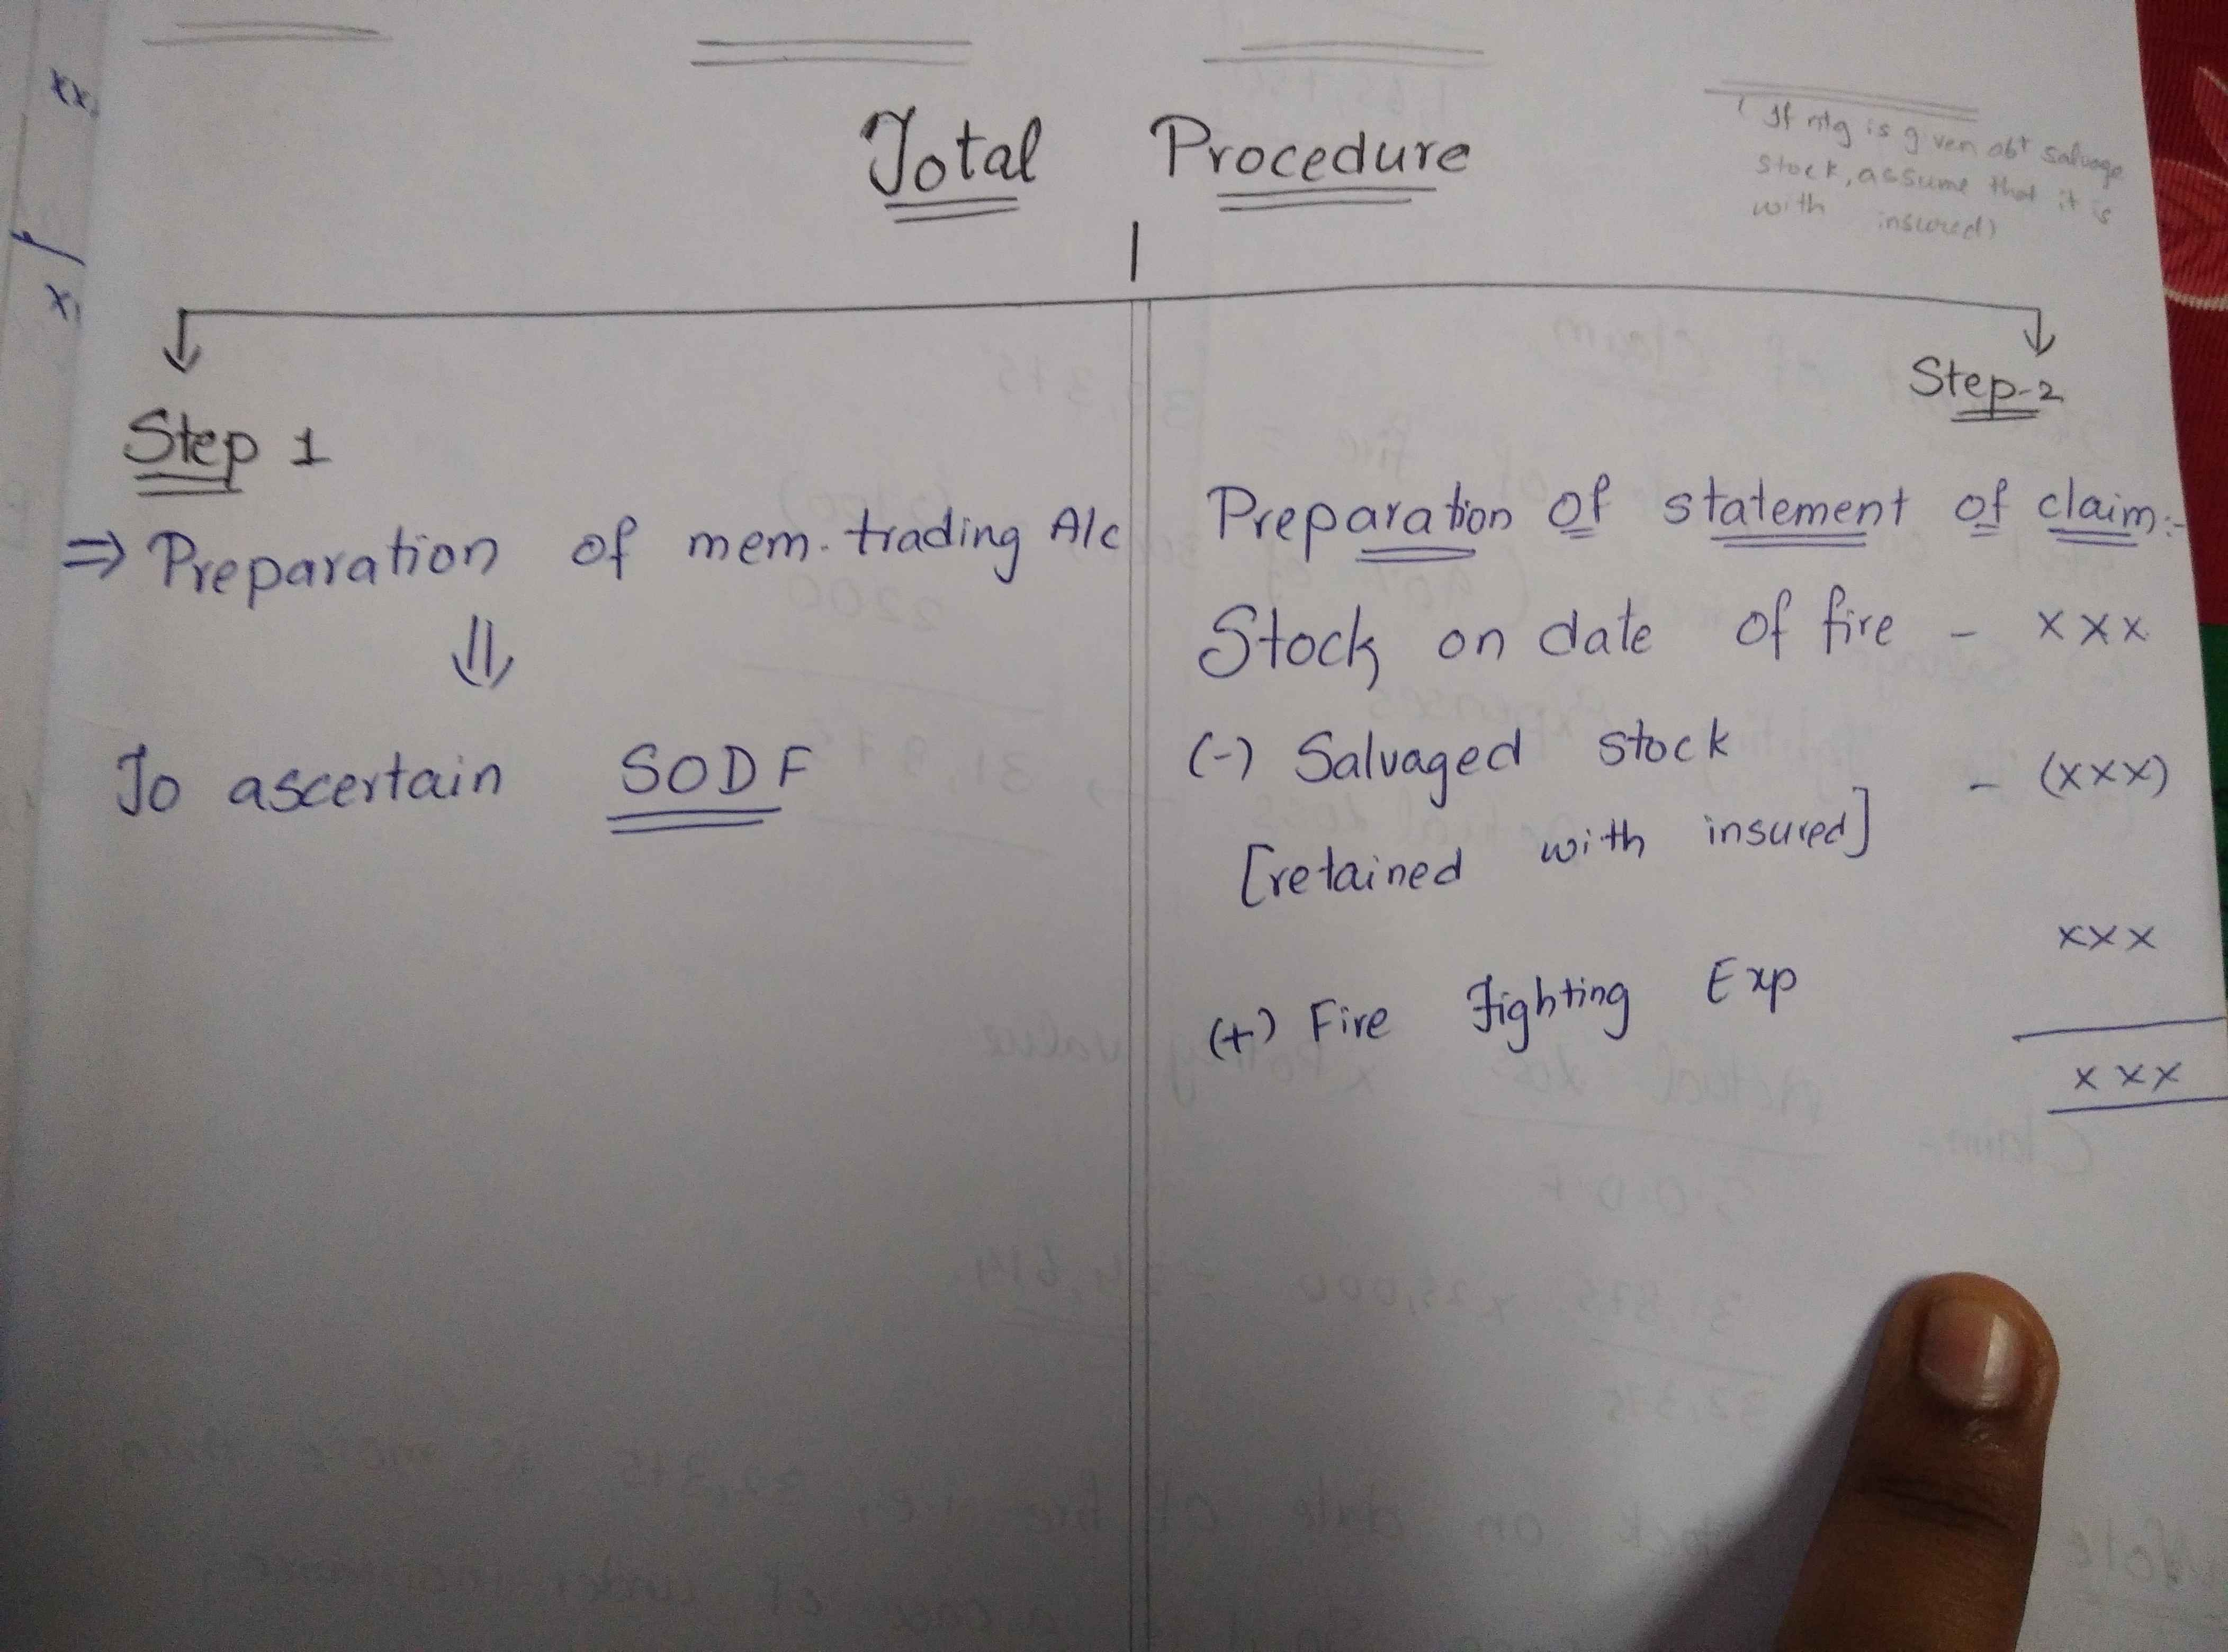 Total Procedure
( If ntg is given abt salvage
stock, assume that it is
with insured)
Step 1
⇒ Preparation of mem. trading A/c
⇓
To ascertain SODF
Step-2
Preparation of statement of claim:-
Stock on date of fire - xxx
(-) Salvaged stock - (xxx)
[retained with insured]
(+) Fire Fighting Exp xxx
xxx